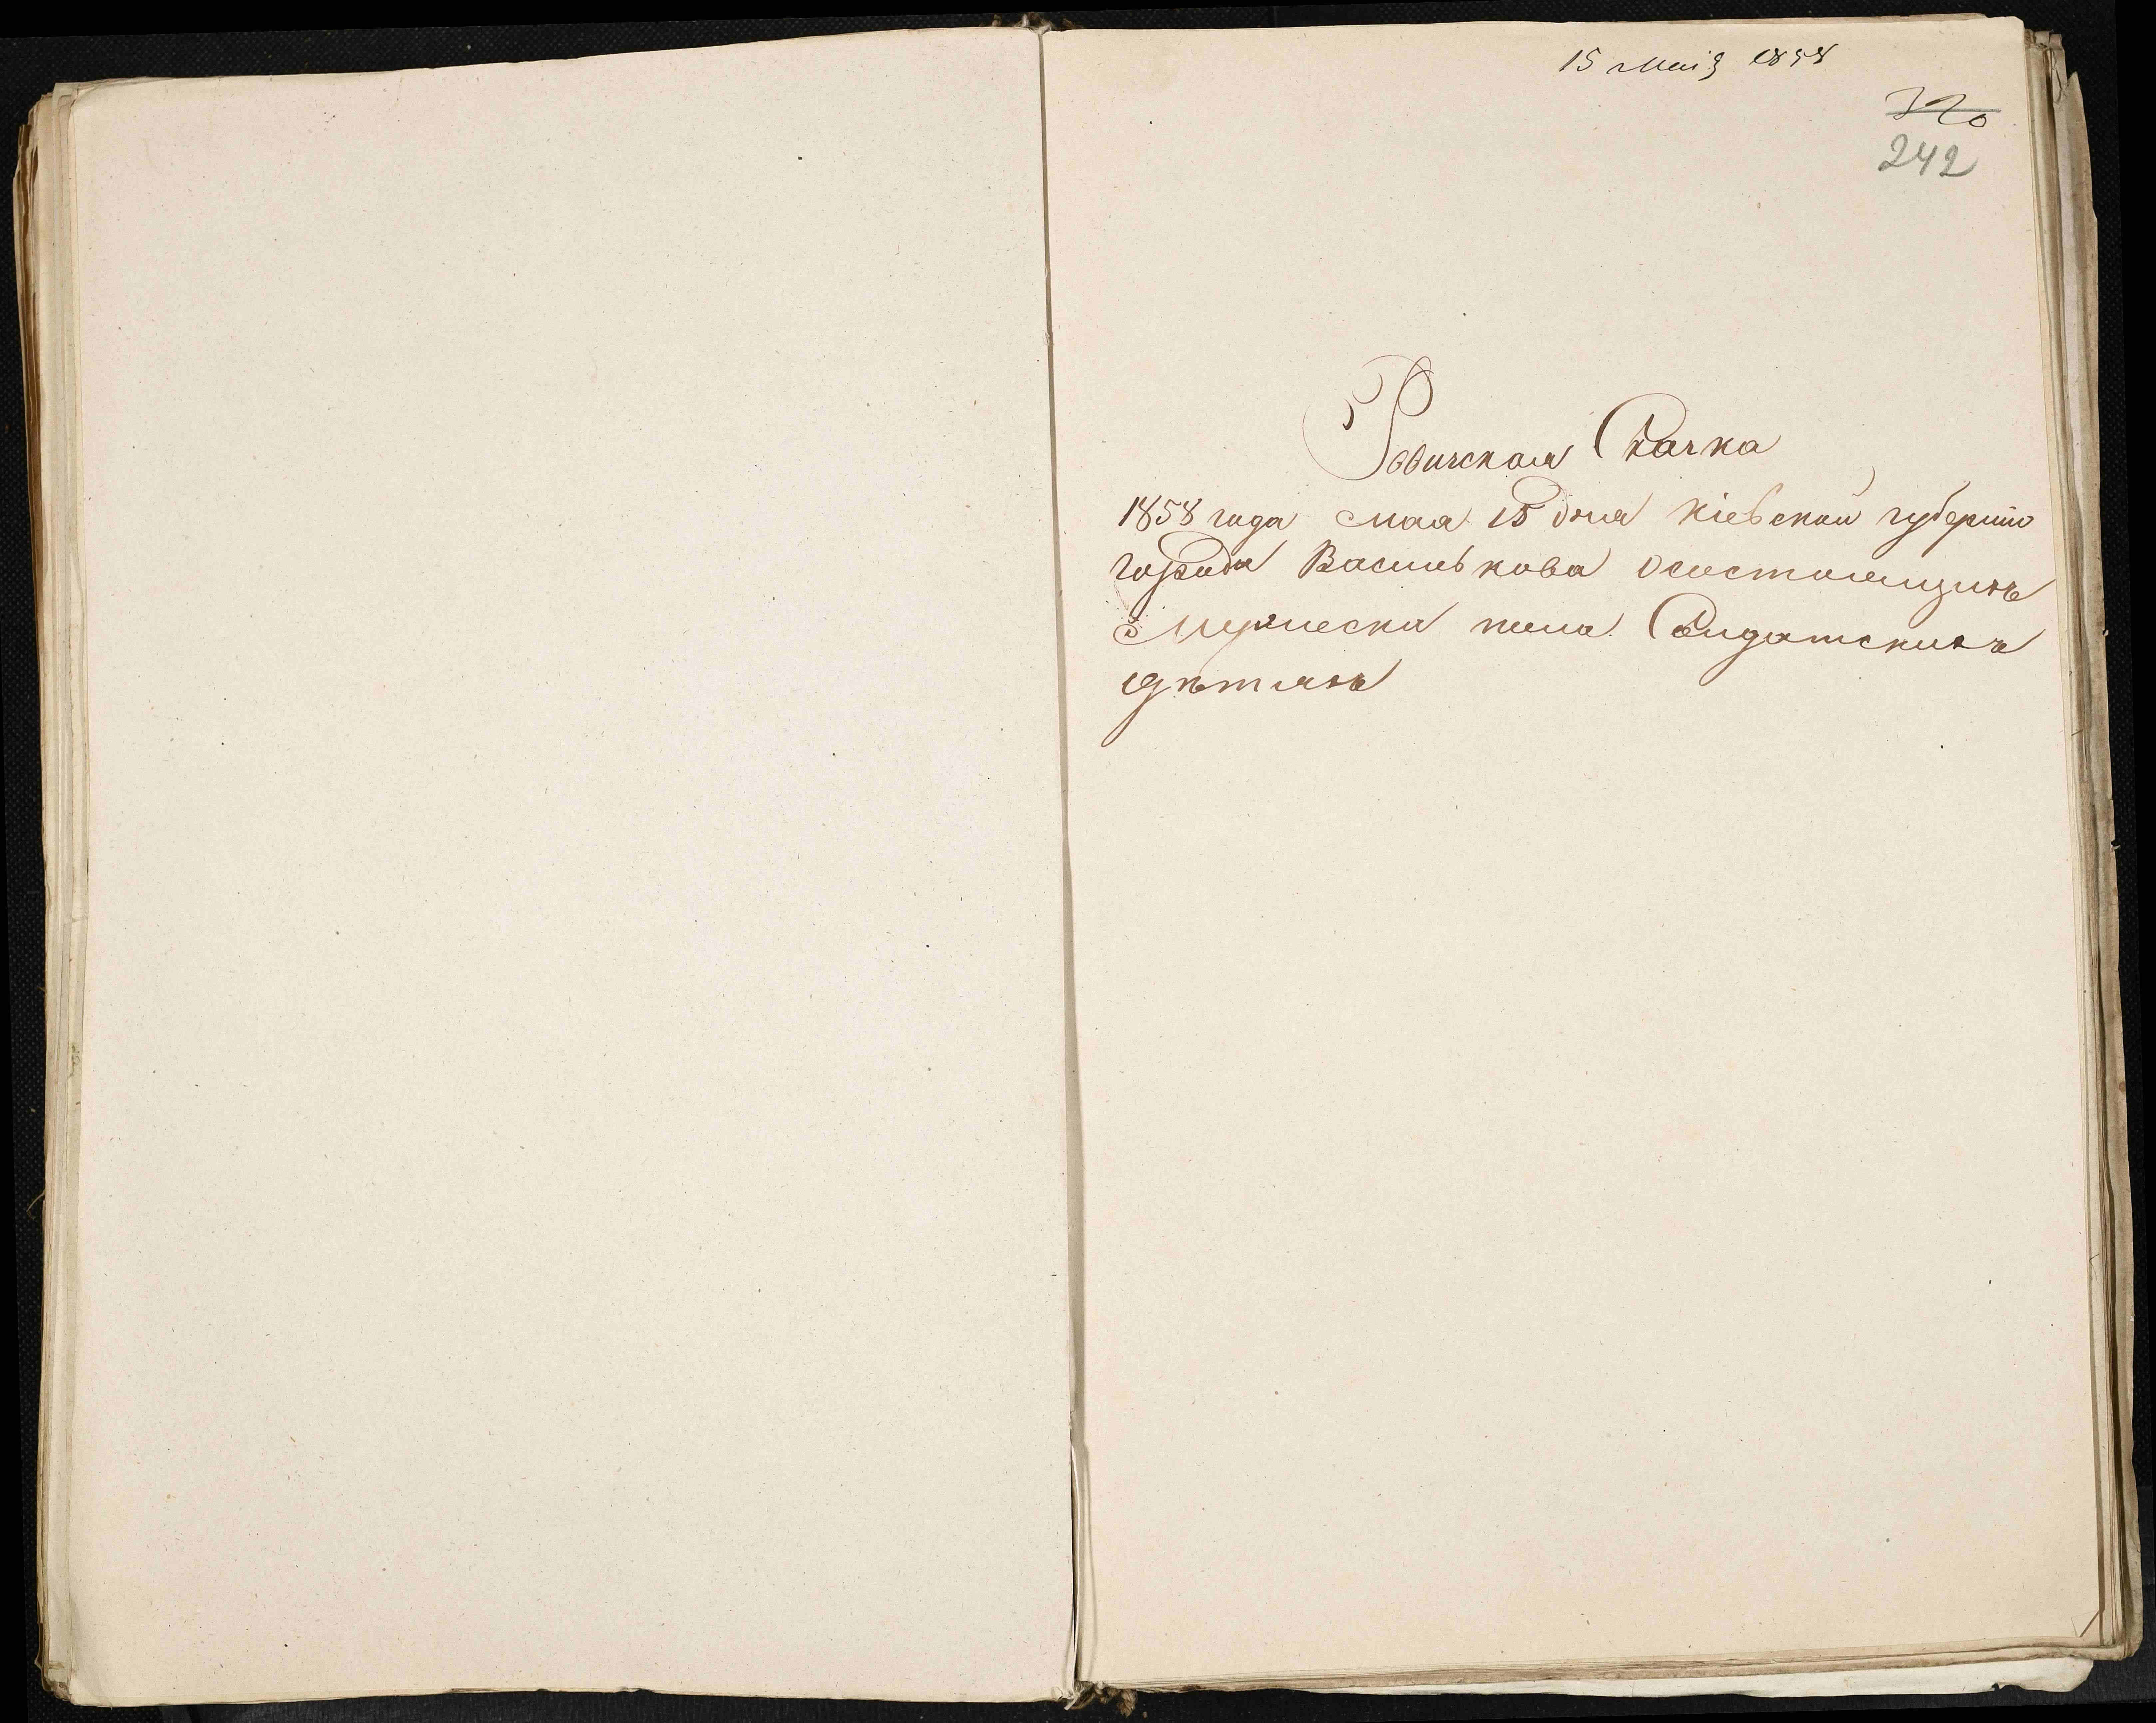 15 Маія 1858
320
242
Ревизская Сказка
1858 года мая 15 дня Кіевской губерніи
города Василькова о состоящихъ
мужеска пола Солдатскихъ
дѣтяхъ